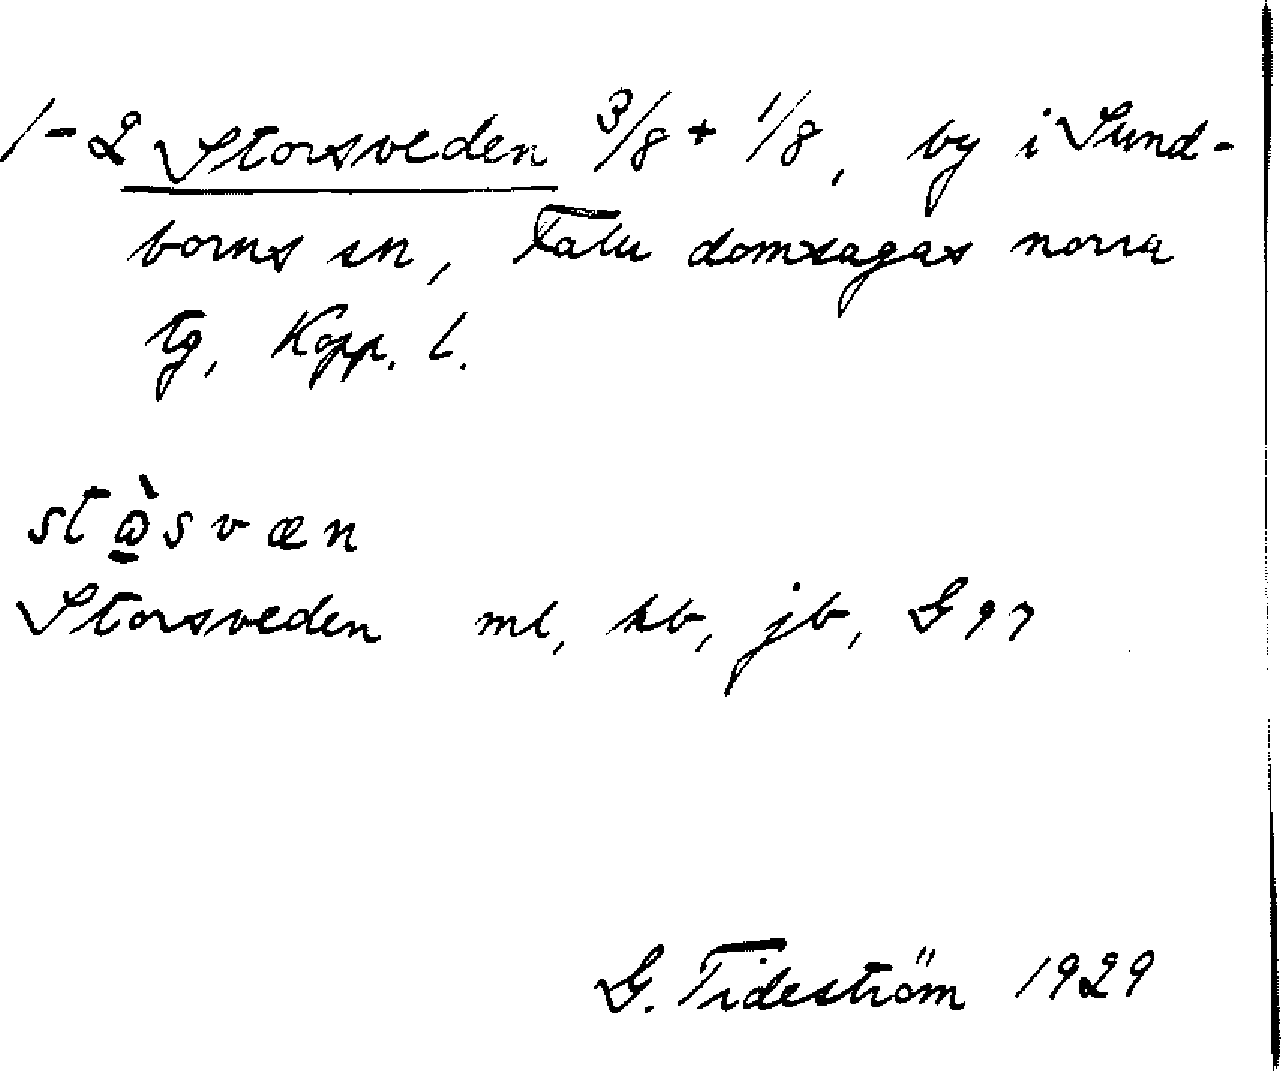 1-2 Storsveden 3/8 + 1/8, by i Sund-
borns sn, Falu domsagas norra
tg, Kopp. l.
stὼ̲svæn
Storsveden ml, kb, jb, G 97
G. Tideström 1929